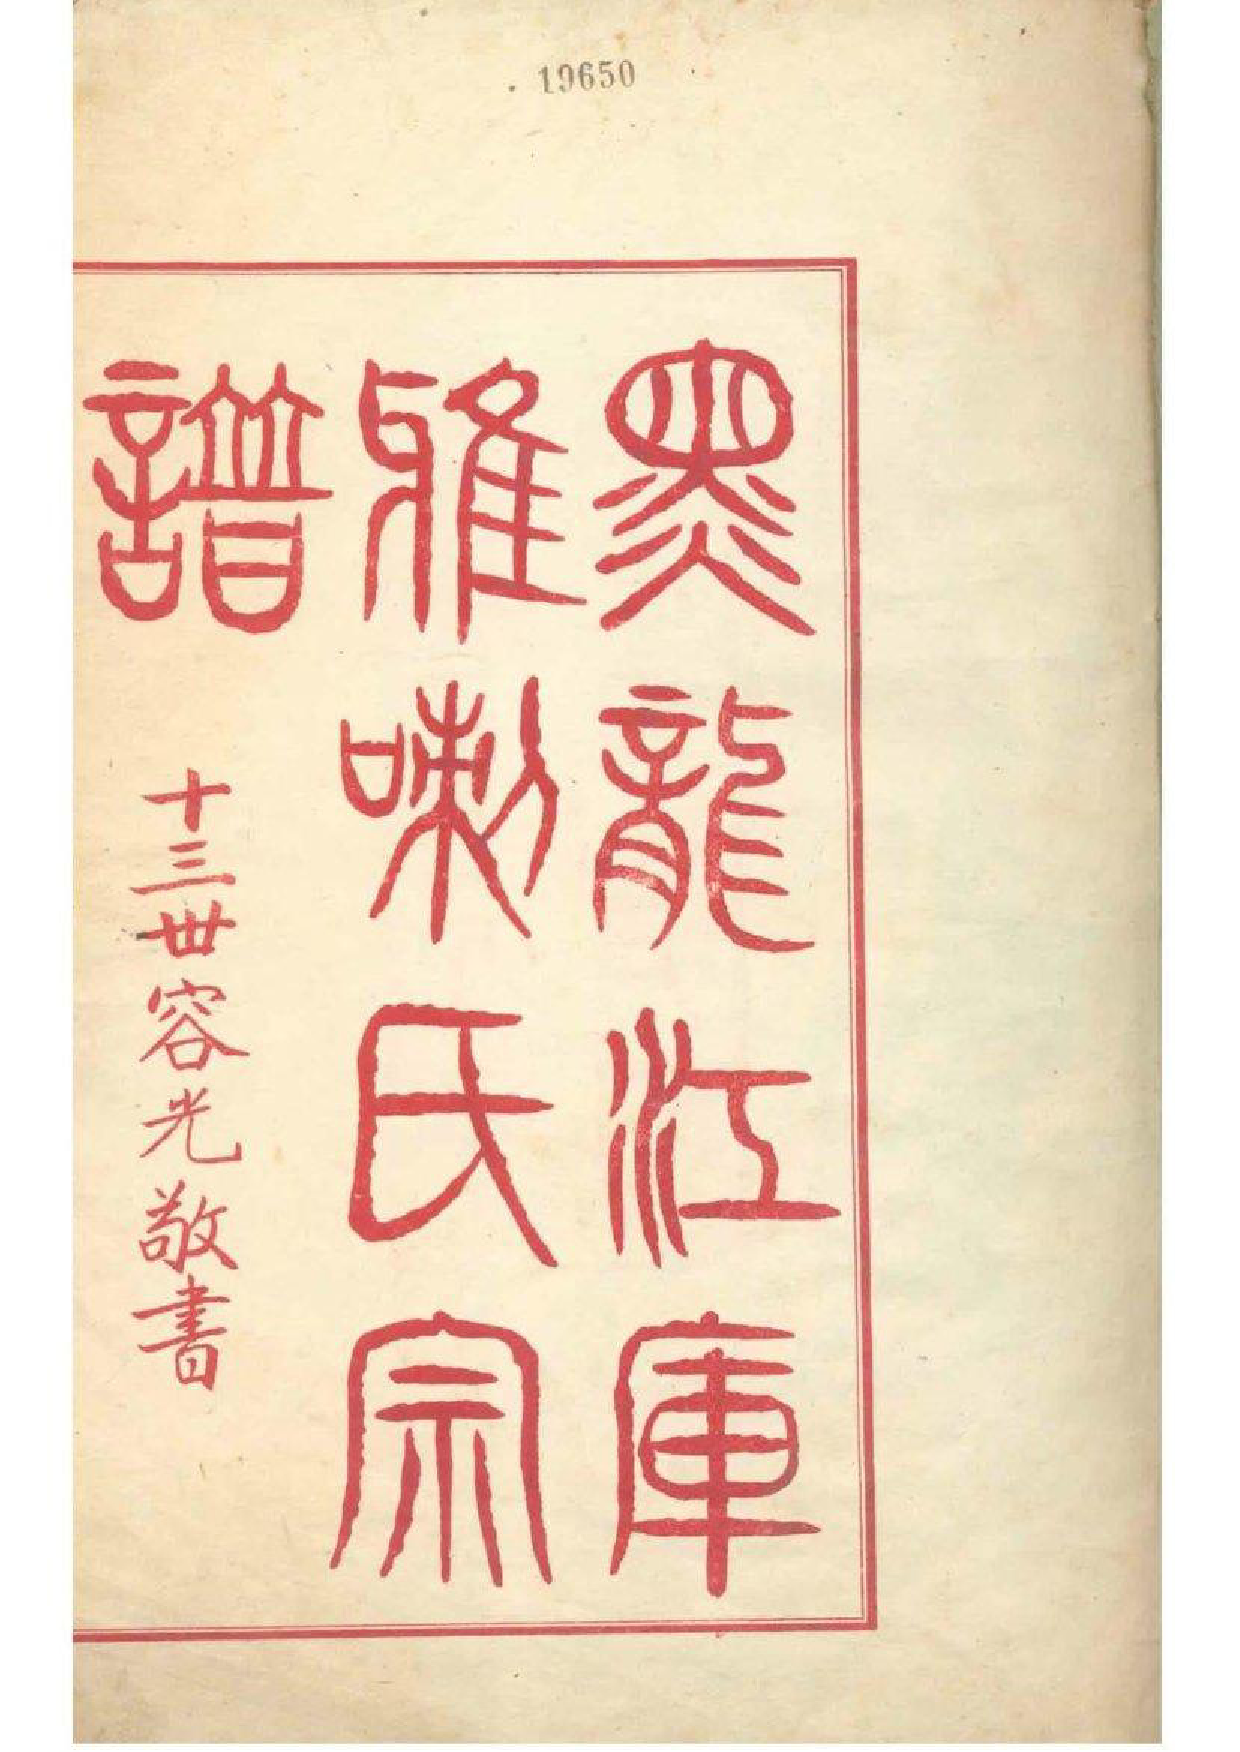 19650
黑龍江庫
雅喇氏宗
譜
十三世容光敬書